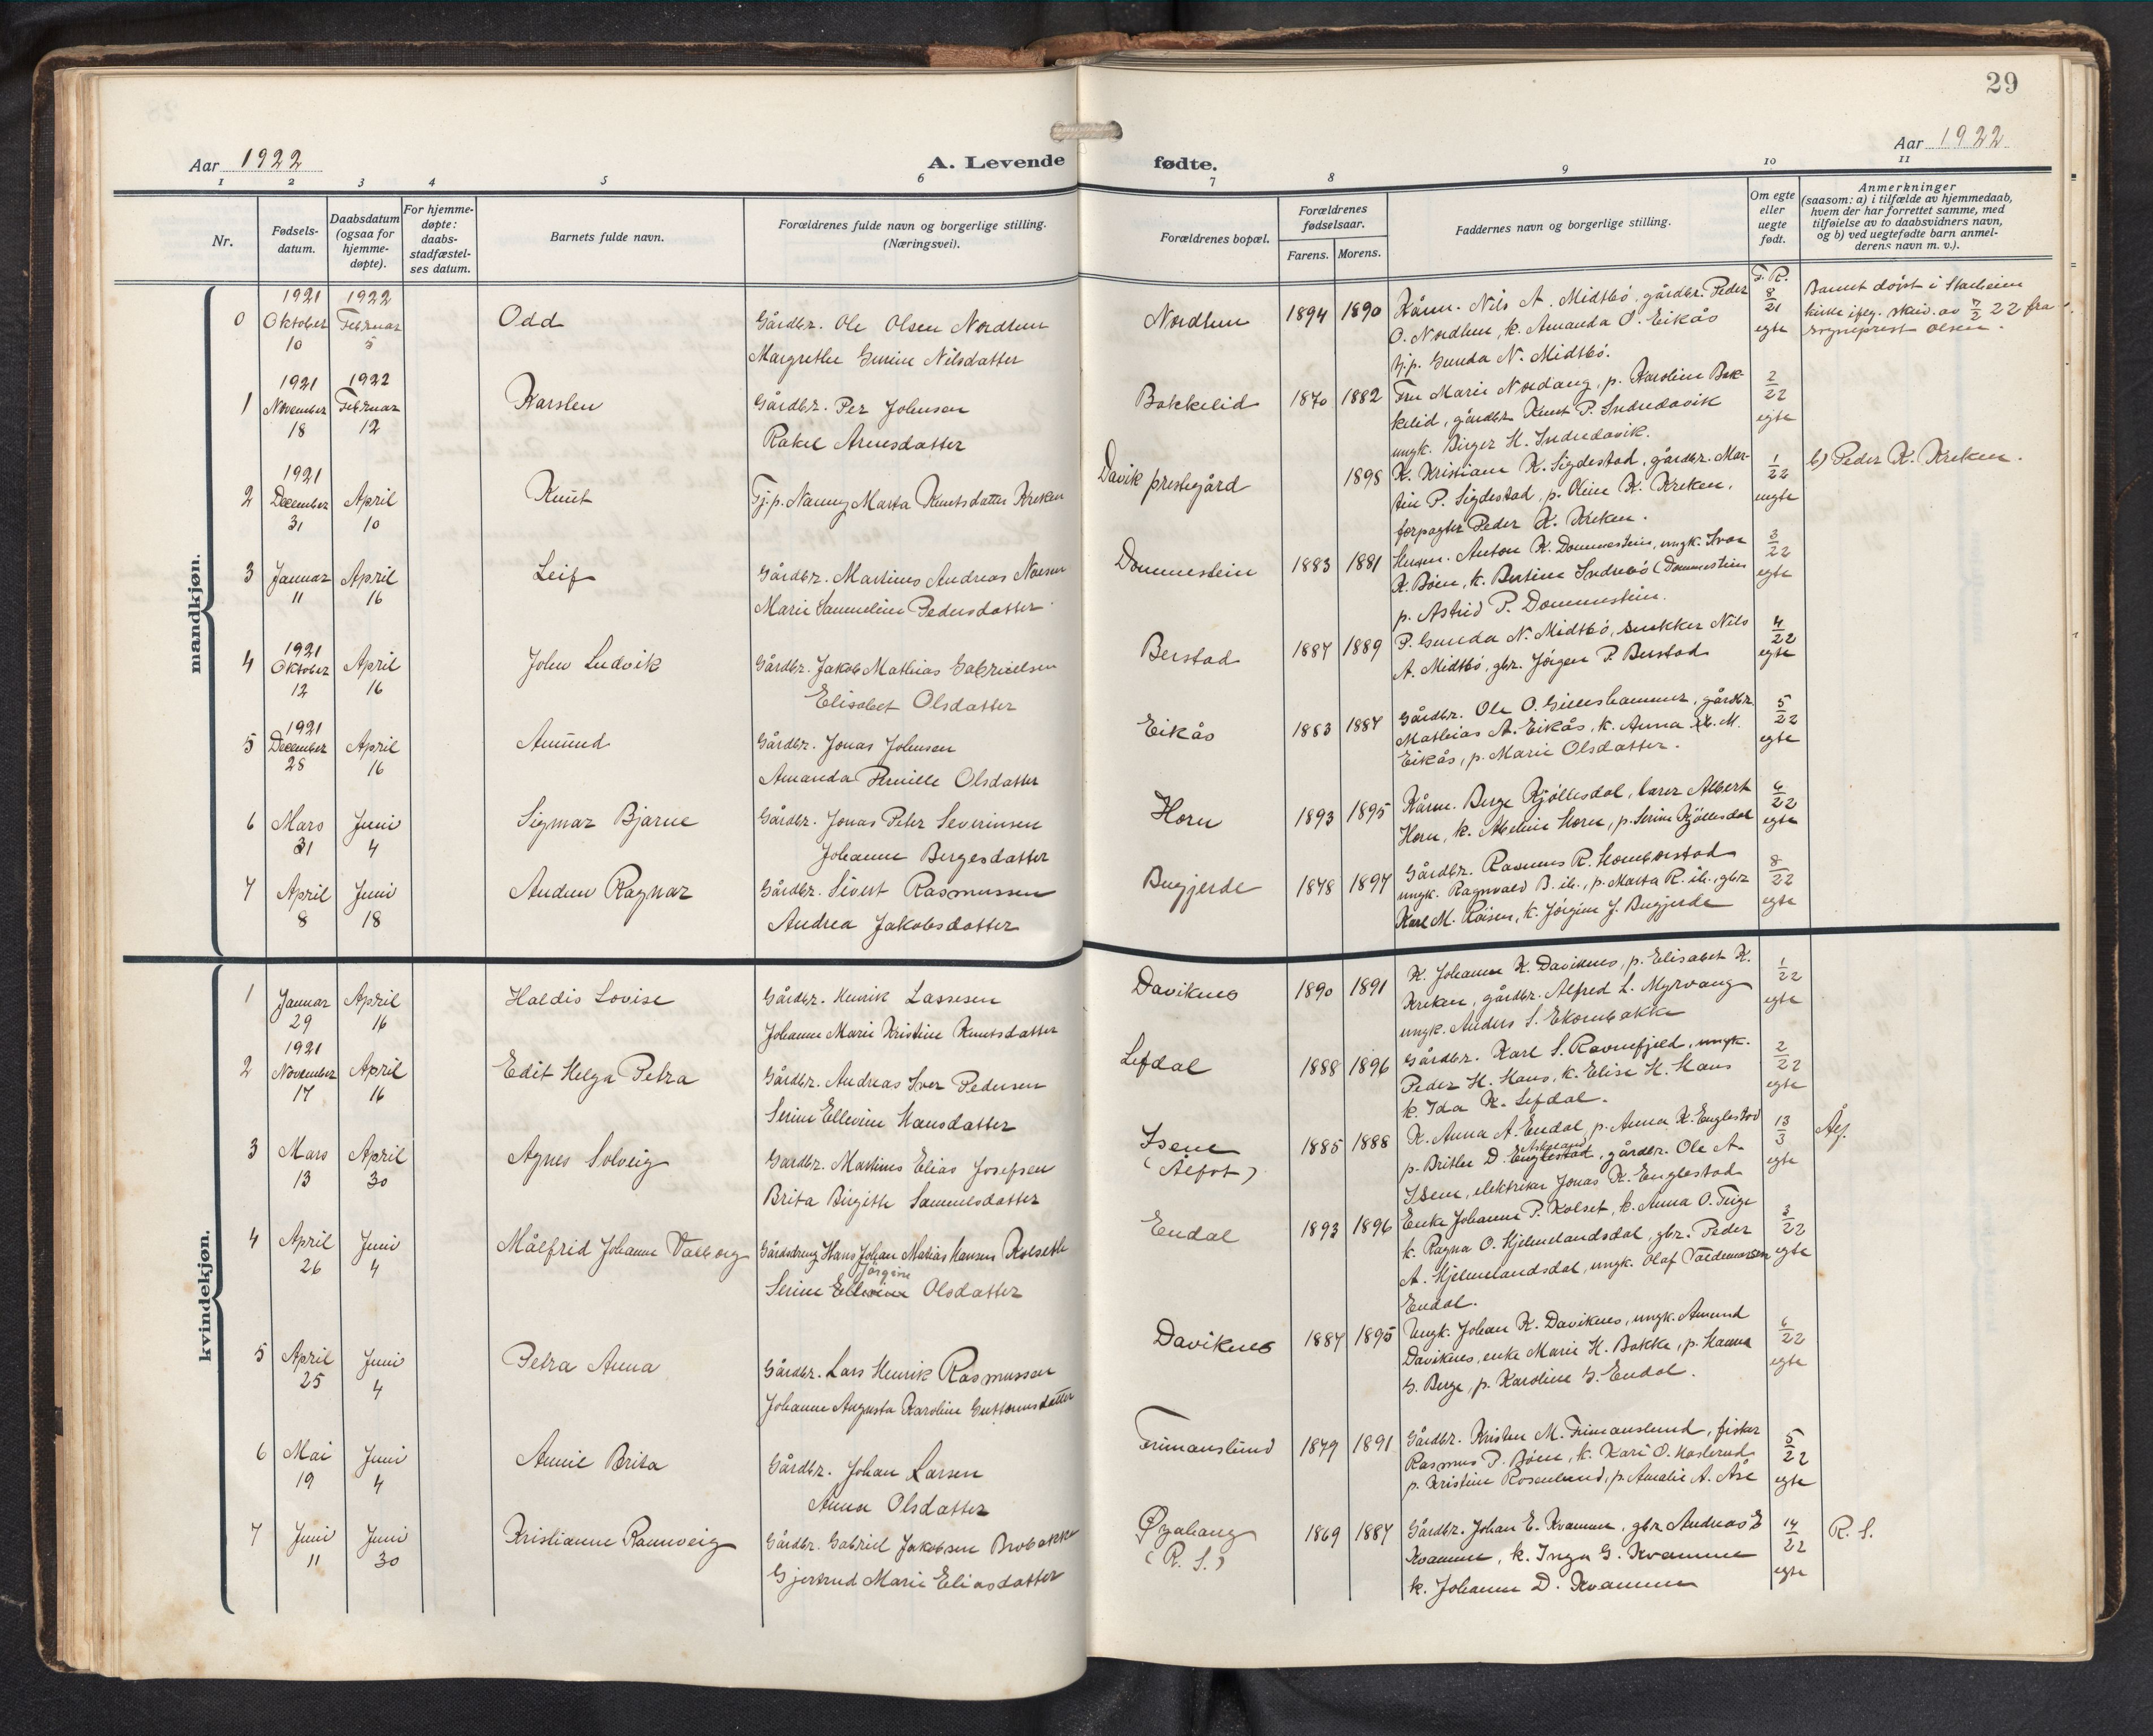 29
Aar 1922
A. Levende
fødte.
Aar 1922
1 2 3 4 5 6 7 8 9 10 11
Nr.
Fødsels-
datum.
Daabsdatum
(ogsaa for
hjemme-
døpte).
For hjemme-
døpte:
daabs-
stadfæstel-
ses datum.
Barnets fulde navn.
Forældrenes fulde navn og borgerlige stilling.
(Næringsvei).
Forældrenes bopæl.
Forældrenes
fødselsaar.
Farens. Morens.
Faddernes navn og borgerlige stilling.
Om egte
eller
uegte
født.
Anmerkninger
(saasom: a) i tilfælde av hjemmedaab,
hvem der har forrettet samme, med
tilføielse av to daabsvidners navn,
og b) ved uegtefødte barn anmel-
derens navn m. v.).
mandkjøn.
0 1921 Oktober 10 1922 Februar 5 Odd
Gårdbr. Ole Olsen Nordhun
Margrethe Serine Nilsdatter
Nordhun 1894 1890
Kårm. Nils A. Midtbö, gårdbr. Peder
O. Nordhun, k. Amanda O. Eikås
tj.p. Gunda N. Midtbö.
F. R. 8/21 egte
Barnet döpt i Starheim
kirke ifölg. skriv. av 7/2 22 fra
sogneprest Olsen.
1 1921 November 18 1922 Februar 12 Karsten
Gårdbr. Per Johnsen
Rakel Arnesdatter
Bakkelid 1870 1882
Fru Marie Nordang, p. Karoline Bak-
kelid, gårdbr. Knut P. Indredavik
ungk. Birger H. Indredavik.
2/22 egte
2 1921 December 31 April 10 Knut
Tj.p. Nanny Marta Knutsdatter Kreken
Davik prestegård 1898
K. Kristiane K. Sigdestad, gårdbr. Mar-
tin P. Sigdestad, p. Oline K. Kreken,
forpagter Peder K. Kreken.
1/22 uegte
b) Peder K. Kreken.
3 Januar 11 April 16 Leif
Gårdbr. Martinus Andreas Nilsen
Marie Samueline Pedersdatter
Dommestein 1883 1881
Husm. Anton K. Dommestein, ungk. Ivar
K. Böen, k. Bertine Indrebö (Dommestein
p. Astrid P. Dommestein.
3/22 egte
4 1921 Oktober 12 April 16 John Ludvik
Gårdbr. Jakob Mathias Gabrielsen
Elisabet Olsdatter
Berstad 1887 1889
P. Gunda N. Midtbö, snekker Nils
A. Midtbö, gbr. Jörgen P. Berstad
4/22 egte
5 1921 December 28 April 16 Amund
Gårdbr. Jonas Johnsen
Amanda Pernille Olsdatter
Eikås 1883 1887
Gårdbr. Ole O. Gilleshammer, gårdbr.
Mathias A. Eikås, k. Anna M.
Eikås, p. Marie Olsdatter.
5/22 egte
6 Mars 31 Juni 4 Sigmar Bjarne
Gårdbr. Jonas Peter Severinsen
Johanne Bergesdatter
Horn 1893 1895
Kårm. Berge Kjöllesdal, lærer Albert
Horn, k. Abeline Horn, p. Serine Kjöllesdal
6/22 egte
7 April 8 Juni 18 Audun Ragnar
Gårdbr. Sivert Rasmussen
Andrea Jakobsdatter
Bugjerde 1878 1897
Gårdbr. Rasmus R. Hombörstad
ungk. Ragnvald B. ib., p. Marta R. ib., gbr
Karl M. Röisen, k. Jörgine J. Bugjerde
8/22 egte
kvindekjøn.
1 Januar 29 April 16 Haldis Lovise
Gårdbr. Henrik Lassesen
Johanne Marie Kristine Knutsdatter
Daviknes 1890 1891
K. Johanne K. Daviknes, p. Elisabet K.
Kreken, gårdbr. Alfred L. Myrvang
ungk. Anders S. Ekornbakke
1/22 egte
2 1921 November 17 April 16 Edit Helga Petra
Gårdbr. Andreas Iver Pedersen
Serine Ellevine Hansdatter
Lefdal 1888 1896
Gårdbr. Karl S. Ravnefjeld, ungk.
Peder H. Haus, k. Elise H. Haus
k. Ida K. Lefdal.
2/22 egte
3 Mars 13 April 30 Agnes Solveig
Gårdbr. Martines Elias Josefsen
Brita Birgitte Samuelsdatter
Isene
(Ålfot) 1885 1888
K. Anna A. Endal, p. Anna K. Englestad
p. Brithe D. Englestad, gårdbr. Ole A.
Isene, elektriker Jonas K. Englestad
13/3 egte
Ålf.
4 April 26 Juni 4 Målfrid Johanne Valborg
Gårdsdreng Hans Johan Matias Hansen Kolseth
Jörgine
Serine Ellevine Olsdatter
Endal 1893 1896
Enke Johanne P. Kolset, k. Anna O. Teige
k. Ragna O. Hjelmelandsdal, gbr. Peder
A. Hjelmelandsdal, ungk. Olaf Valdemarsen
Endal.
3/22 egte
5 April 25 Juni 4 Petra Anna
Gårdbr. Lars Henrik Rasmussen
Johanne Augusta Karoline Guttormsdatter
Daviknes 1887 1895
Ungk. Johan K. Daviknes, ungk. Amund
Daviknes, enke Marie H. Bakke, p. Hanna
G. Berge, p. Karoline G. Endal.
6/22 egte
6 Mai 19 Juni 4 Annie Brita
Gårdbr. Johan Larsen
Anna Olsdatter
Frimanslund 1879 1891
Gårdbr. Kristen M. Frimanslund, fisker
Rasmus P. Böen, k. Kari O. Haslerud
p. Kristine Rosenlund, p. Amalie A. Åse
5/22 egte
7 Juni 11 Juni 30 Kristianne Rannveig
Gårdbr. Gabriel Jakobsen Brobakke
Gjertrud Marie Eliasdatter
Øyahaug
(R. S.) 1869 1887
Gårdbr. Johan E. Kvamme, gbr. Andreas E
Kvamme, k. Inga G. Kvamme
k. Johanne D. Kvamme
14/22 egte
R. S.